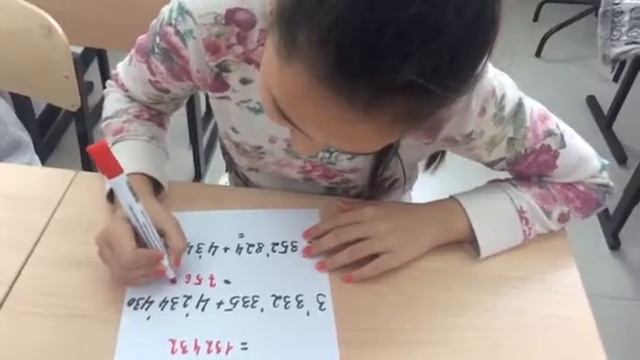 = 132432
3'332'335+4'234'430
= 756
352'824+4'34
=